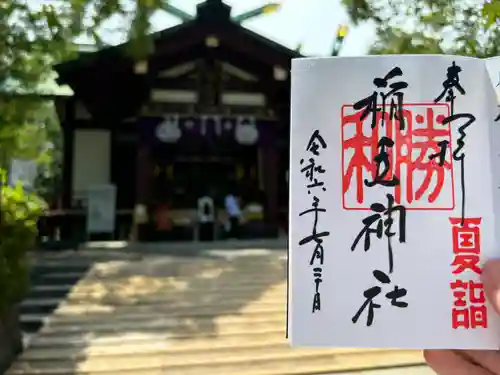 奉拝
夏詣
稲毛神社
勝和
令和六年七月二日